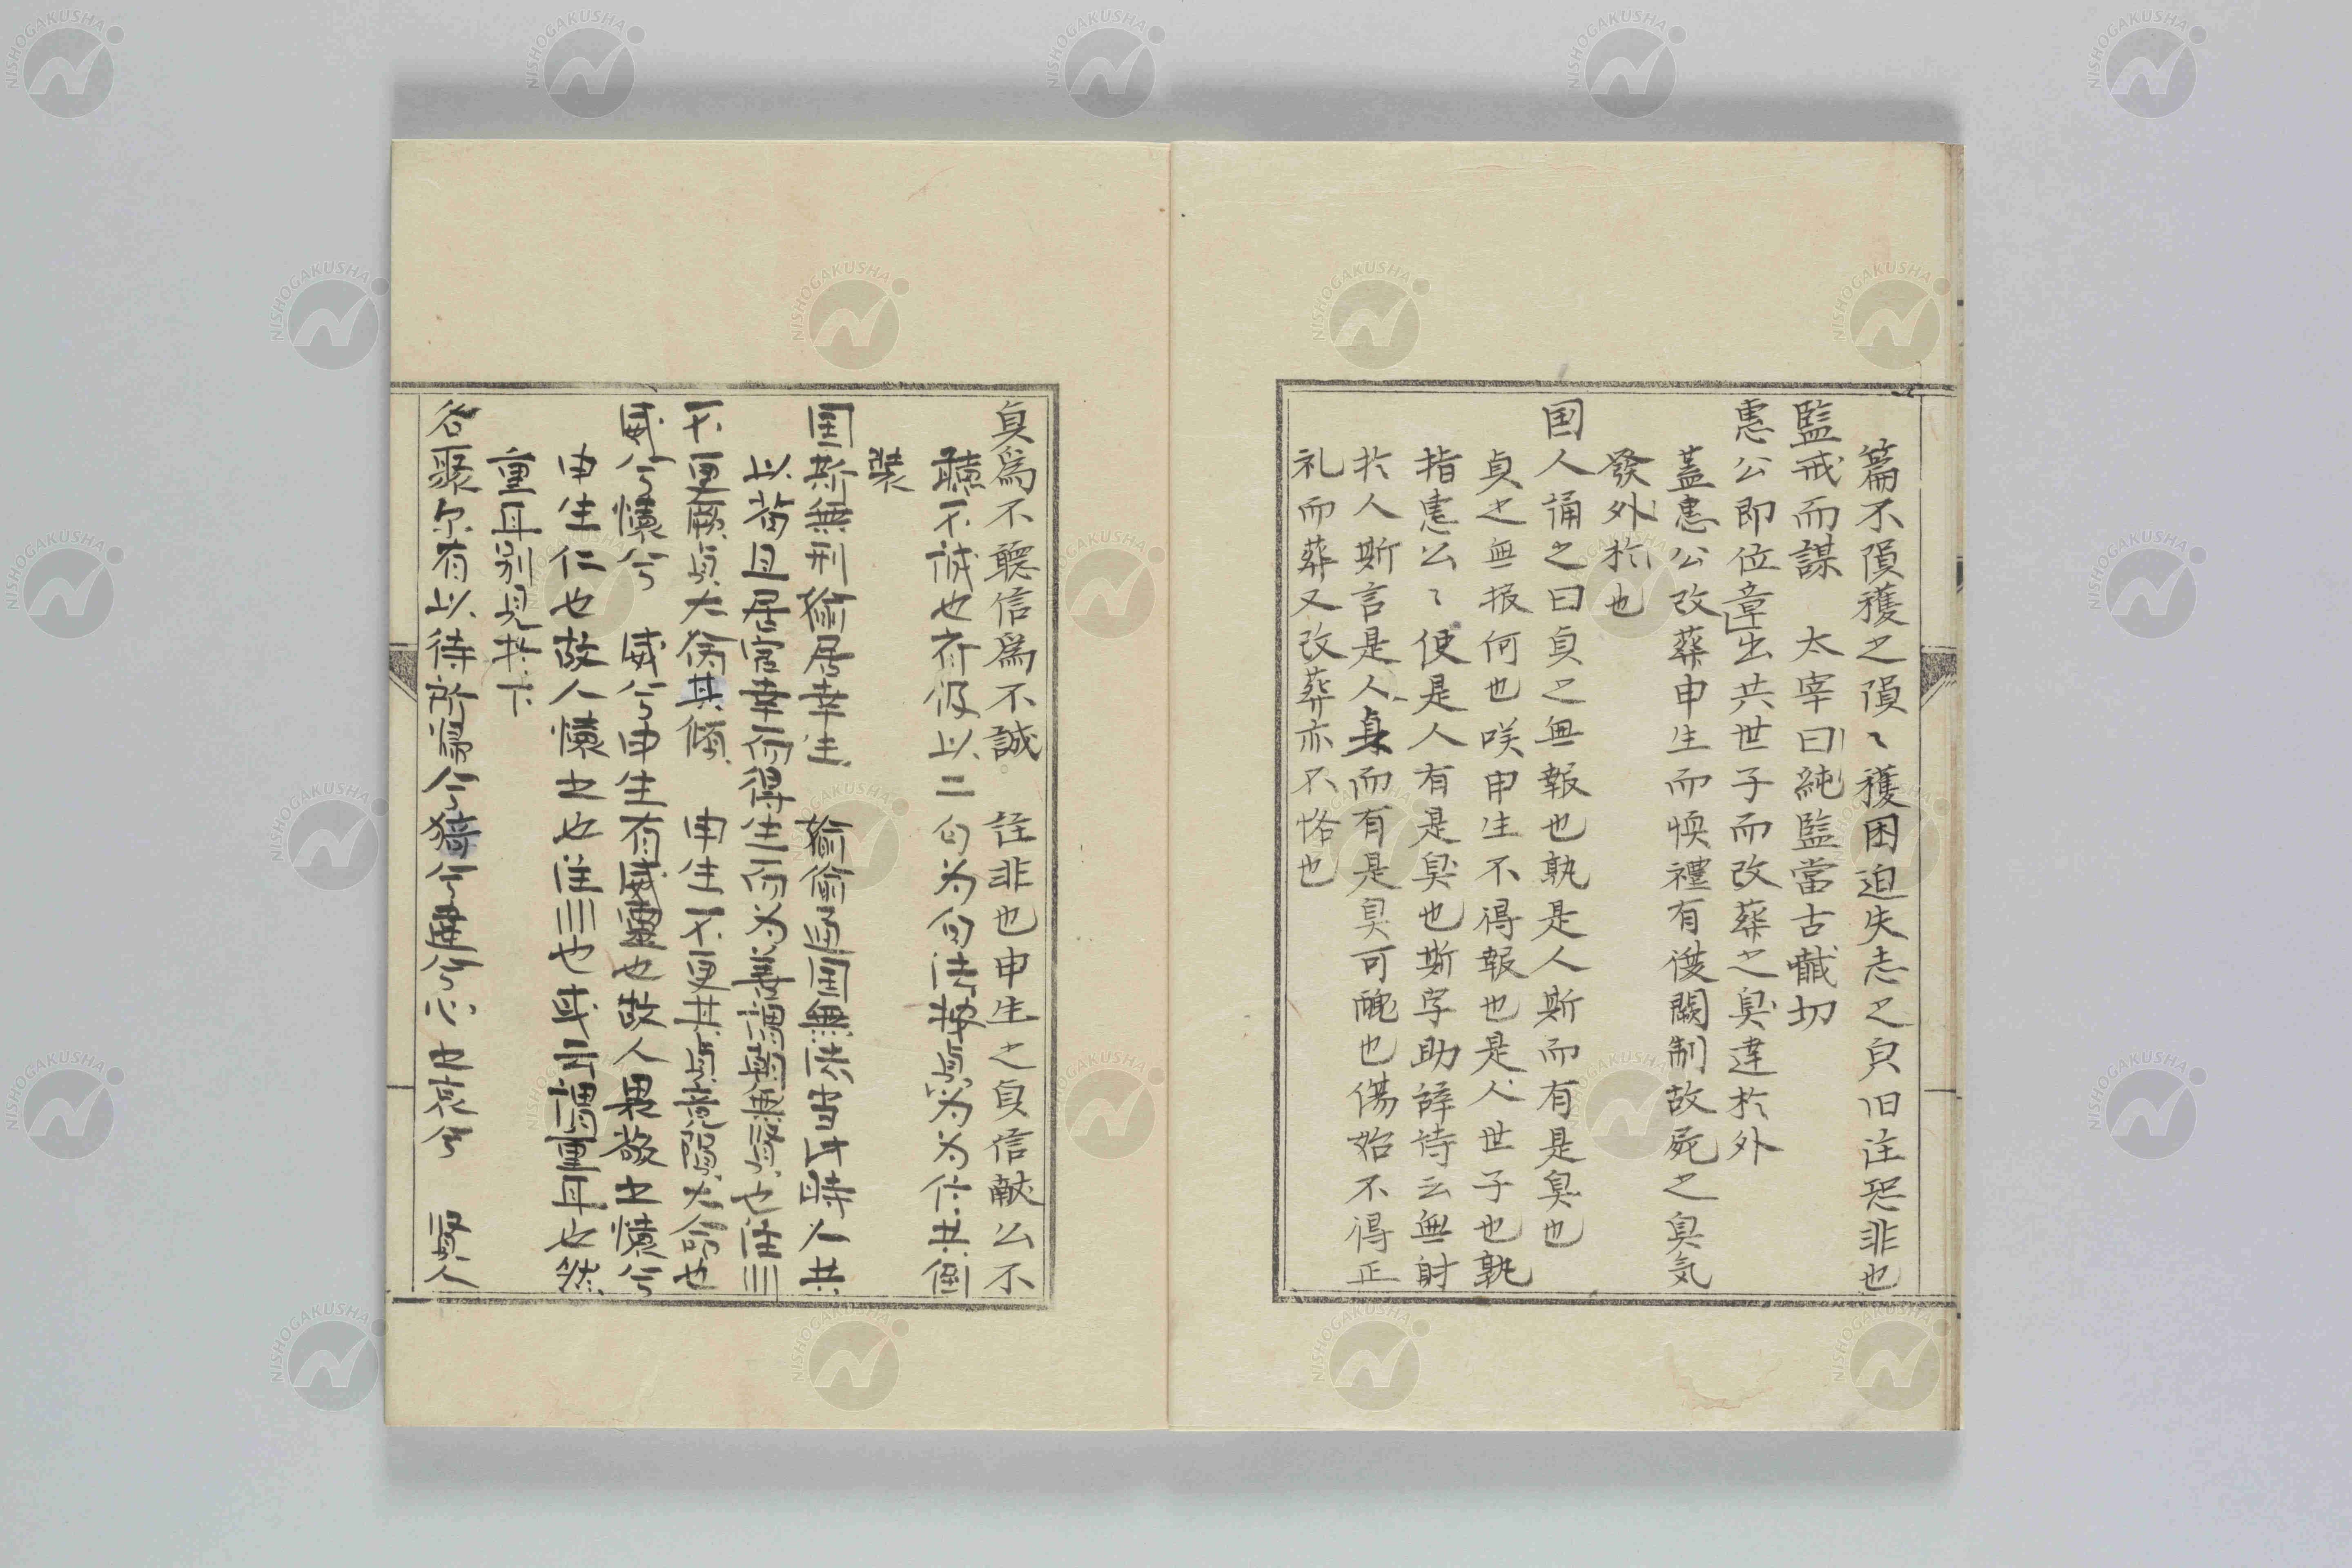 篇不隕穫之隕〻穫困迫失志之皃旧注恐非也
監戒而謀　太宰曰純監當古醎切
惠公即位章出共世子而改葬之臭達於外
蓋惠公改葬申生而愞禮有後闕制故死之臭気
發外於也
国人誦之曰貞之無報也孰是人斯而有是臭也
貞之無报何也咲申生不得報也是人世子也孰
指惠公〻使是人有是臭也斯字助辞詩云無射
於人斯言是人身而有是臭可醜也傷始不得正
礼而葬又改葬亦不恪也
貞爲不聽信爲不誠　註非也申生之貞信献公不
聽不誠也希伋以二句为句法按貞为为作共倒
装
国斯無刑偷居幸生　偷偷通国無法当此時人共
以苟且居官幸而得生而为善謂朝無賢也注川
不更厥貞大命其傾　申生不更其貞竟隕大命也
威兮懷兮　威兮申生有威霊也故人畏敬之懷兮
申生仁也故人懷之也注川也或云謂重耳也然
重耳别見於下
各聚尔有以待所歸兮猗兮違兮心之哀兮　賢人